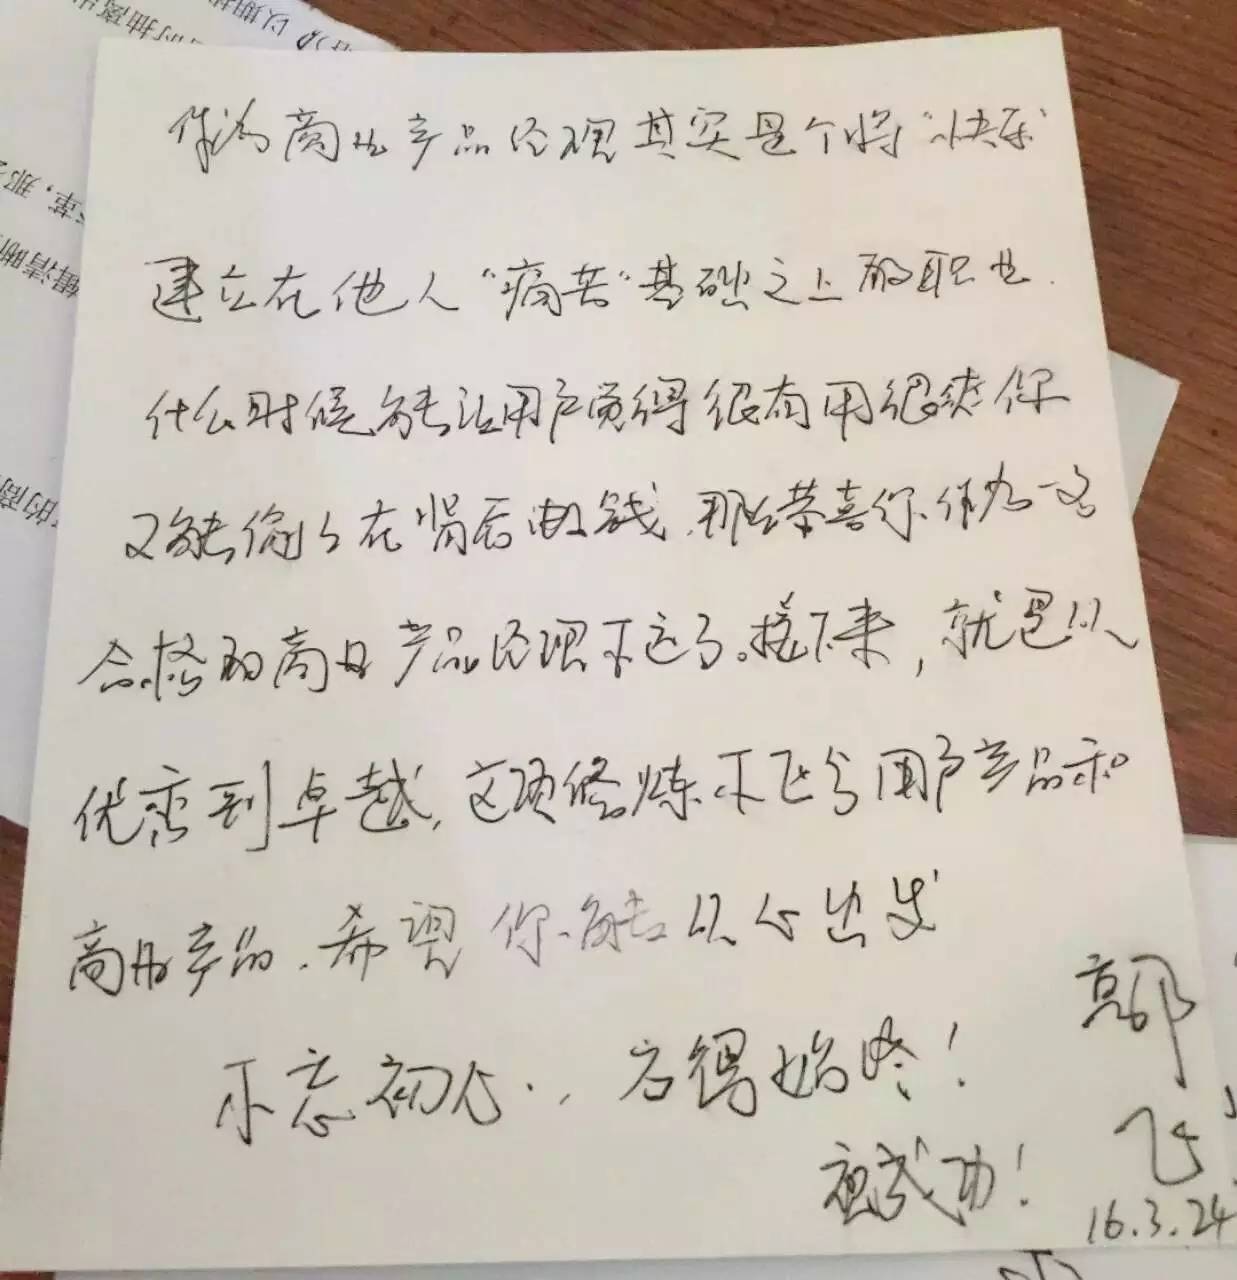 作为商业产品经理其实是个将“快乐”
建立在他人“痛苦”基础之上的职业.
什么时候能让用户觉得很有用很爽你
又能偷偷在背后收钱.那么恭喜你作为一名
合格的商业产品经理不远了。接下来，就是从
优秀到卓越,这项修炼不区分用户产品和
商业产品.希望你能从心出发
不忘初心，方得始终！
祝成功！
郭
飞
16.3.24